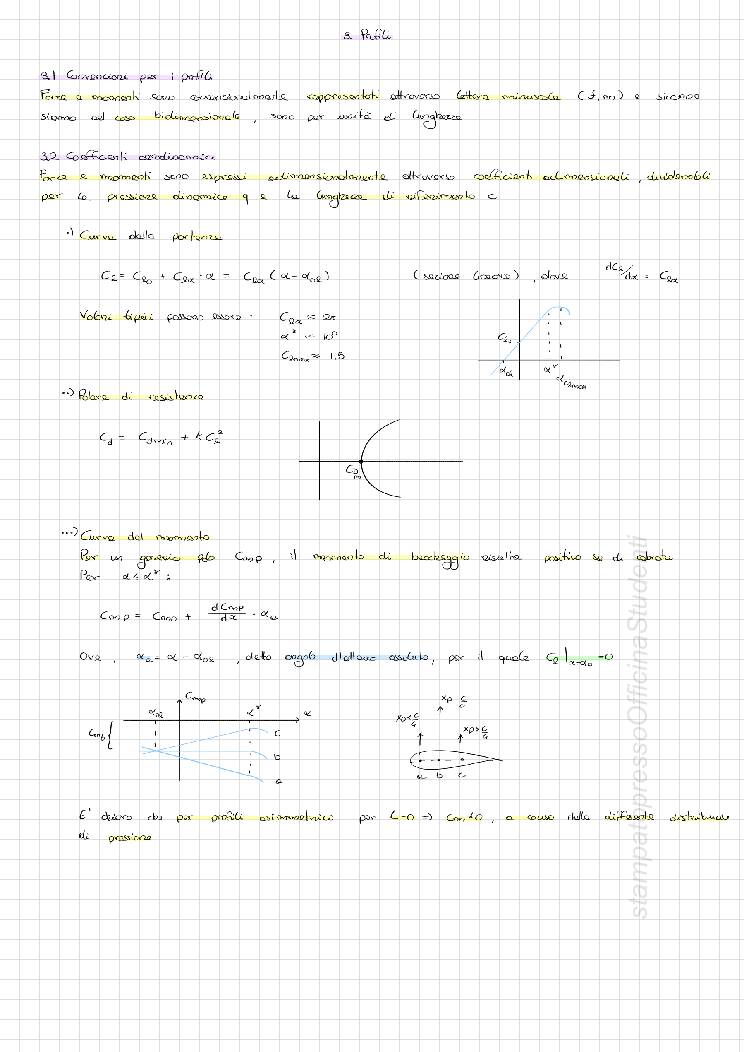 3. Profili
3.1 Convenzioni per i profili
Forze e momenti sono convenzionalmente rappresentati attraverso lettere minuscole (f, m) e siccome
siamo nel caso bidimensionale, sono per unità di lunghezza
3.2 Coefficienti aerodinamici
Forze e momenti sono espressi adimensionalmente attraverso coefficienti adimensionali, dividendoli
per la pressione dinamica q e la lunghezza di riferimento c
·) Curva della portanza
Cℓ = Cℓ0 + Cℓα · α = Cℓα (α - α0ℓ) (regione lineare), dove dCℓ/dα = Cℓα
Valori tipici possono essere: Cℓα ≈ 2π
α* ≈ 10°
Cℓmax ≈ 1,5
Cℓ0
α0ℓ α* αCℓmax
··) Polare di resistenza
Cd = Cdmin + kCℓ²
CDm
···) Curva del momento
Per un generico polo CmP, il momento di beccheggio risulta positivo se di cabrata
Per α < α*:
CmP = Cm0 + dCmP/dα · αa
Ove, αa = α - α0ℓ, detto angolo d'attacco assoluto, per il quale Cℓ|α=α0 = 0
CmP
α0ℓ α* α
Cm0 { c
b
a
xP = c/4
xP < c/4 xP > c/4
a b c
E' chiaro che per profili asimmetrici per L=0 ⇒ Cm ≠ 0, a causa della differente distribuzione
di pressione
stampatopressoOfficinaStudenti